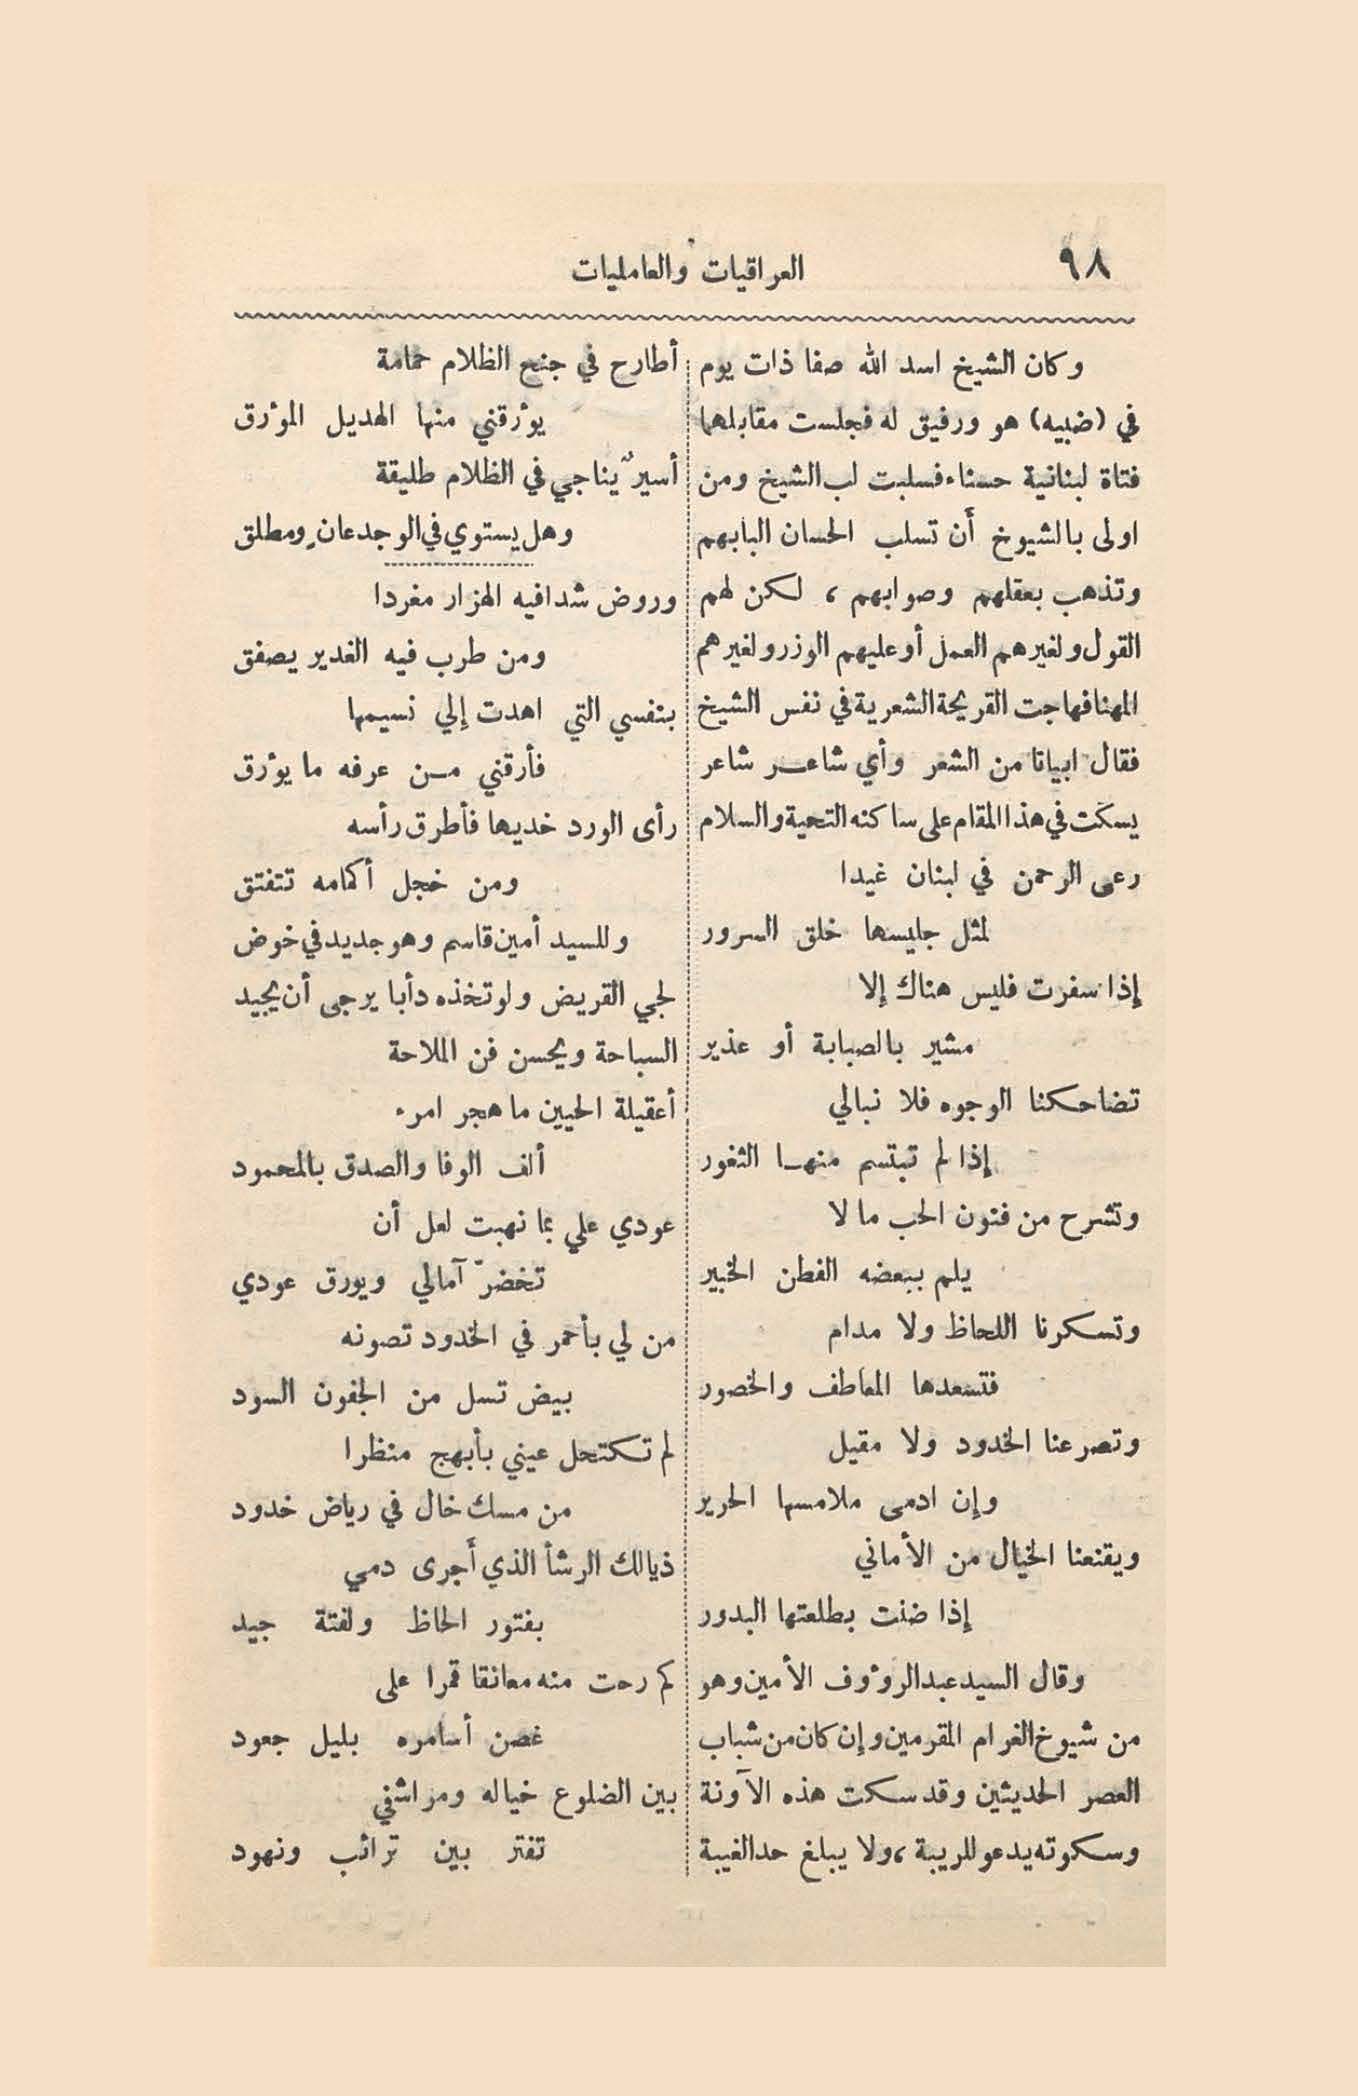 ٩٨
العراقيات والعامليات
وكان الشيخ اسد الله صفا ذات يوم
في (ضبيه) هو ورفيق له فجلست مقابلهما
فتاة لبنانية حسناء فسلبت لب الشيخ ومن
اولى بالشيوخ أن تسلب الحسان البابهم
وتذهب بعقلهم وصوابهم ، لكن لهم
القول ولغيرهم العمل أو عليهم الوزر ولغيرهم
المهنا فهاجت القريحة الشعرية في نفس الشيخ
فقال ابياتا من الشعر وأي شاعر شاعر
يسكت في هذا المقام على ساكنه التحية والسلام
رعى الرحمن في لبنان غيدا
لمثل جليسها خلق السرور
إذا سفرت فليس هناك إلا
مشير بالصبابة أو عذير
تضاحكنا الوجوه فلا نبالي
إذا لم تبتسم منها الثغور
وتشرح من فنون الحب ما لا
يلم ببعضه الفطن الخبير
وتسكرنا اللحاظ ولا مدام
فتسعدها المعاطف والخصور
وتصرعنا الخدود ولا مقيل
وإن ادمى ملامسها الحرير
ويقنعنا الخيال من الأماني
إذا ضنت بطلعتها البدور
وقال السيد عبد الرؤوف الأمين وهو
من شيوخ الغرام المقرمين وإن كان من شباب
العصر الحديثين وقد سكت هذه الآونة
وسكوته يدعو للريبة ، ولا يبلغ حد الغيبة
أطارح في جنح الظلام حمامة
يؤرقني منها الهديل المؤرق
أسيرٌ يناجي في الظلام طليقة
وهل يستوي في الوجد عانٍ ومطلق
وروض شدا فيه الهزار مغردا
ومن طرب فيه الغدير يصفق
بنفسي التي اهدت إلي نسيمها
فأرقني من عرفه ما يؤرق
رأى الورد خديها فأطرق رأسه
ومن خجل أكمامه تتفتق
وللسيد أمين قاسم وهو جديد في خوض
لجي القريض ولو تخذه دأبا يرجى أن يجيد
السباحة ويحسن فن الملاحة
أعقيلة الحيين ما هجر امرء
ألف الوفا والصدق بالمحمود
عودي علي بما نهبت لعل أن
تخضرّ آمالي ويورق عودي
من لي بأحمر في الخدود تصونه
بيض تسل من الجفون السود
لم تكتحل عيني بأبهج منظرا
من مسك خال في رياض خدود
ذيالك الرشأ الذي أجرى دمي
بفتور الحاظ ولفتة جيد
كم رحت منه معانقا قمرا على
غصن أسامره بليل جعود
بين الضلوع خياله ومراشفي
تفتر بين ترائب ونهود